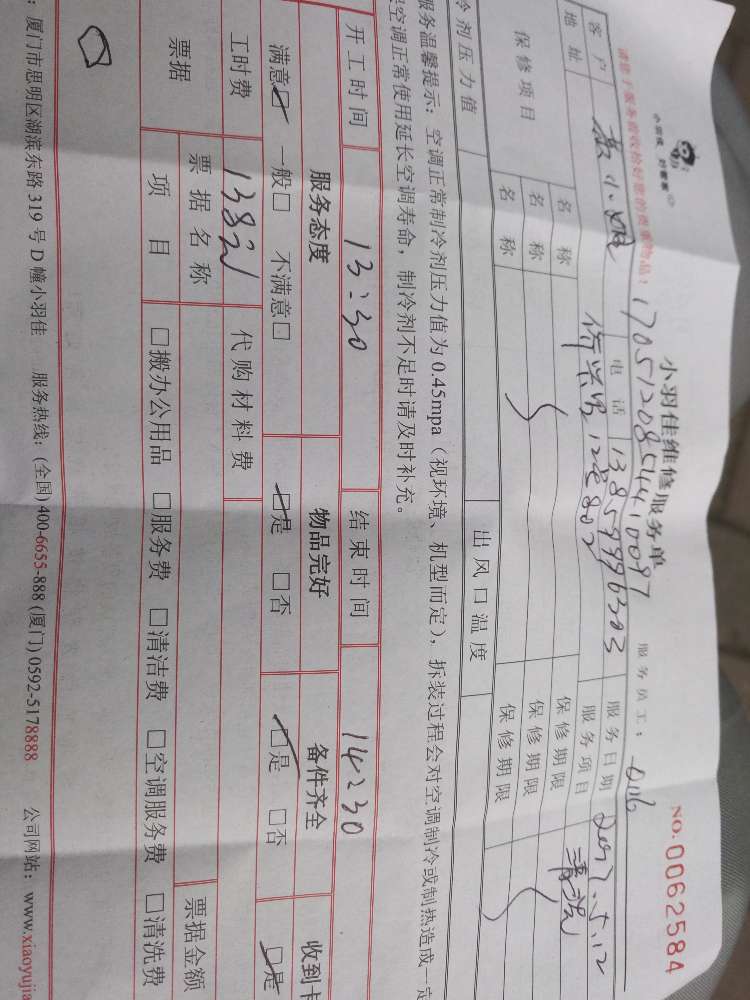 小羽佳 好管家
小羽佳维修服务单
NO.0062584
请您于服务前收拾好您的贵重物品！
17051208544410097
服务员工： 0116
客户
小姐
电话 13859996303
服务日期 2017.5.12
地址
12号802
服务项目 清洗
保修项目
名称
保修期限
名称
保修期限
名称
保修期限
冷剂压力值
出风口温度
服务温馨提示：空调正常制冷剂压力值为0.45mpa（视环境、机型而定），拆装过程会对空调制冷或制热造成一定
空调正常使用延长空调寿命，制冷剂不足时请及时补充。
开工时间 13:30 结束时间 14:30
服务态度 物品完好 备件齐全 收到卡
满意☑ 一般□ 不满意□ ☑是 □否 ☑是 □否 ☑是
工时费 138元 代购材料费
票据
票据名称
票据金额
项目
□搬办公用品 □服务费 □清洁费 □空调服务费 □清洗费
：厦门市思明区湖滨东路319号D幢小羽佳 服务热线：(全国) 400-6655-888 (厦门) 0592-5178888 公司网站：www.xiaoyujia